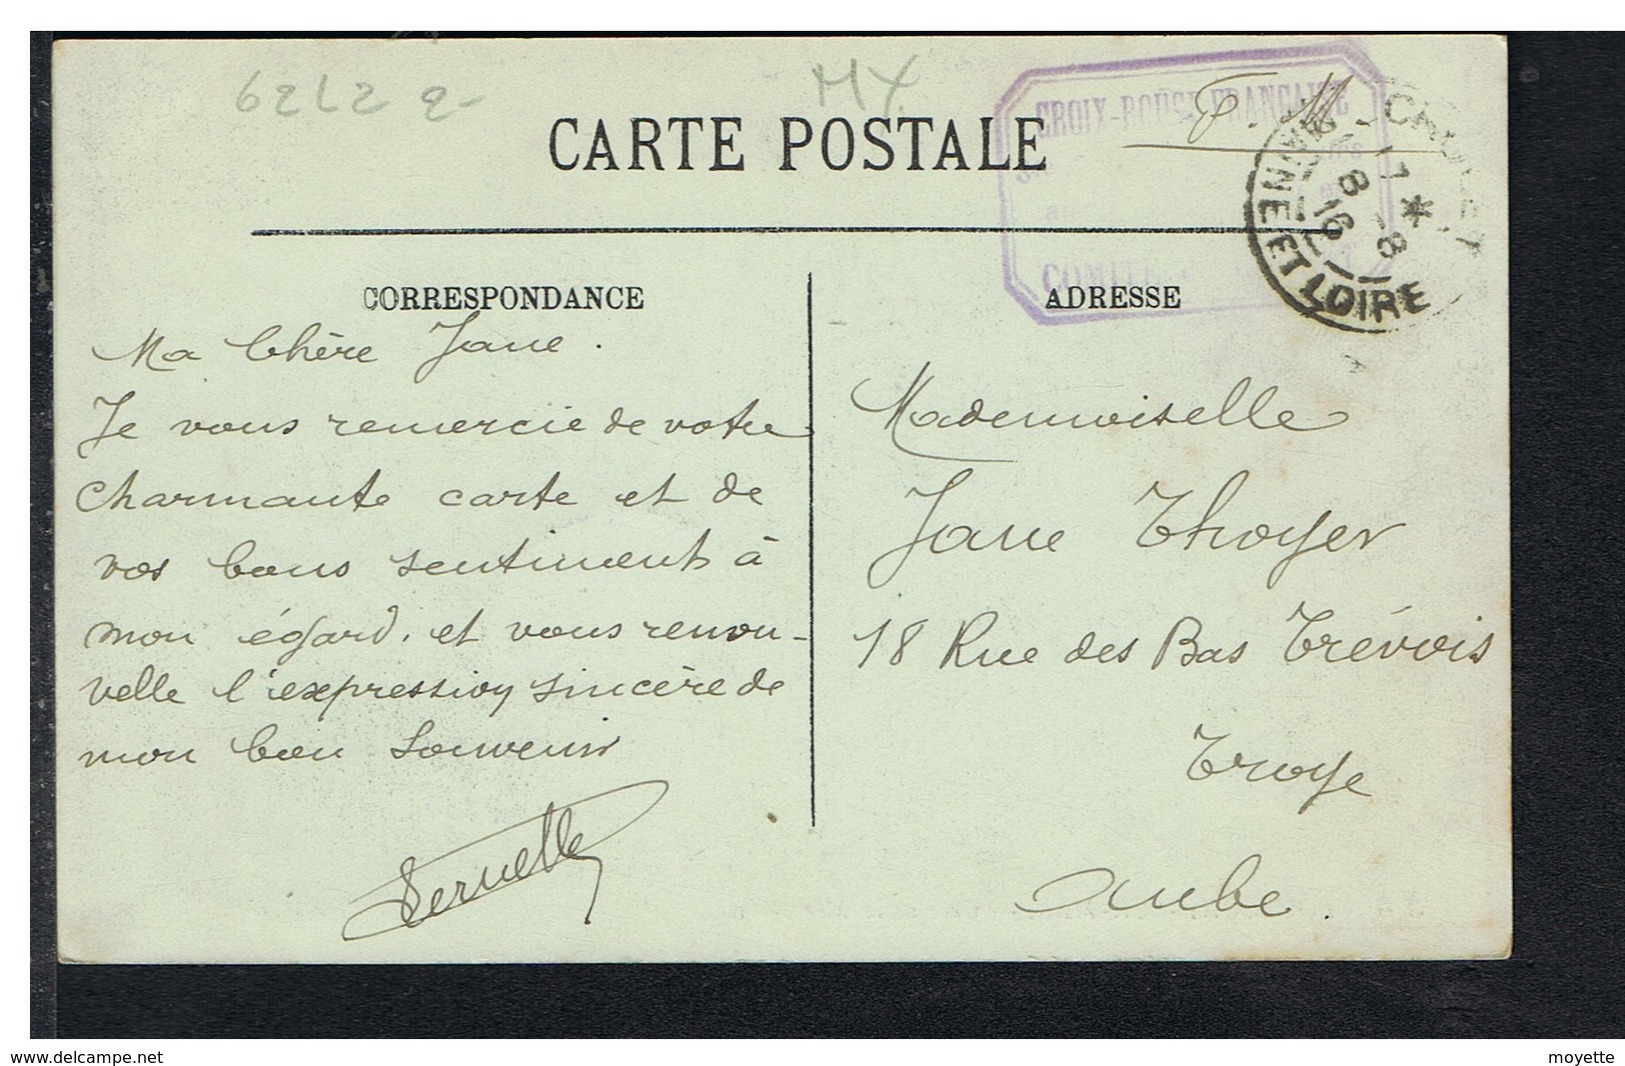 62L2 2-
MX
F. M.
CROIX-ROUSE FRANÇAISE
COMITÉ
CHOLET
MAINE ET LOIRE
17 *
8 -8
16
CARTE POSTALE
CORRESPONDANCE
Ma Chère Jane.
Je vous remercie de votre
charmante carte et de
vos bons sentiments à
mon égard. et vous renou-
velle l'expression sincère de
mon bon Souvenir
ADRESSE
Mademoiselle
Jane Thoyer
18 Rue des Bas Trévois
Troye
Aube.
www.delcampe.net
moyette